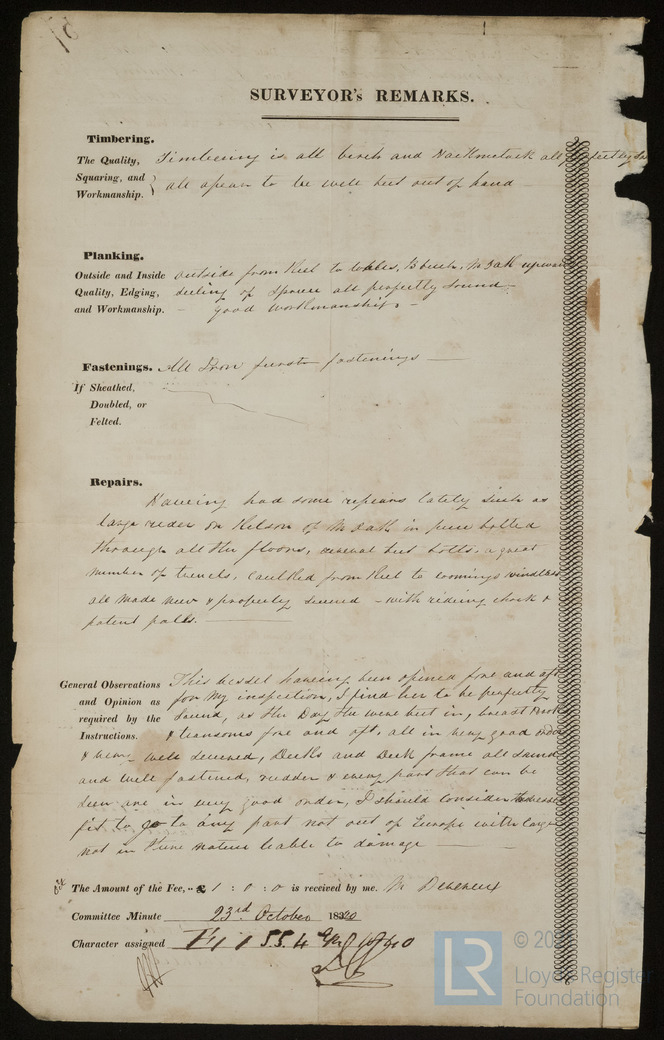 SURVEYOR's REMARKS.
Timbering.
The Quality, Squaring, and Workmanship. } Timbering is all birch and Hackmetack all
all apear to be well put out of hand
Planking.
Outside and Inside Quality, Edging, and Workmanship.
outside from Keel to Wales, B birch,
Seeling of Spruce all perfectly sound
good workmanship
Fastenings. All Iron fastenings
If Sheathed,
Doubled, or
Felted.
Repairs.
Haveing had some repears lately such as
large rider on Kelson of in pine bolted
through all the floors, several bolts, a great
number of trunels, caulked from Keel to comings windless
all made new & properly secured - with rideing chock &
patent palls.
General Observations and Opinion as required by the Instructions.
This vessel haveing been opened fore and aft
for my inspection, I find her to be perfectly
Sound, as the Day She were in, breast
& transoms fore and aft, all in very good order
& well secured, Decks and Deck frame all sound
and well fastened, rudder & every part that can be
seen are in very good order, I should consider the vessel
fit to go to any part not out of Europe with cargo
not in nature liable to damage
The Amount of the Fee, £ 1 : 0 : 0 is received by me. M
Committee Minute 23rd October 1840
Character assigned
LR
Lloyd's Register
Foundation